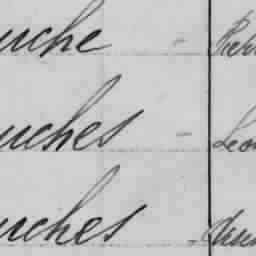 uche - Pier
uches - Leon
uches